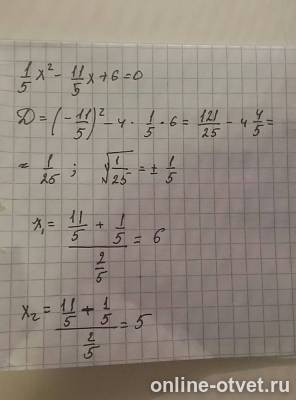 1/5 x² - 11/5 x + 6 = 0
D = (-11/5)² - 4 · 1/5 · 6 = 121/25 - 4 4/5 =
= 1/25 ; √(1/25) = ± 1/5
x₁ = (11/5 + 1/5) / (2/5) = 6
x₂ = (11/5 - 1/5) / (2/5) = 5
online-otvet.ru